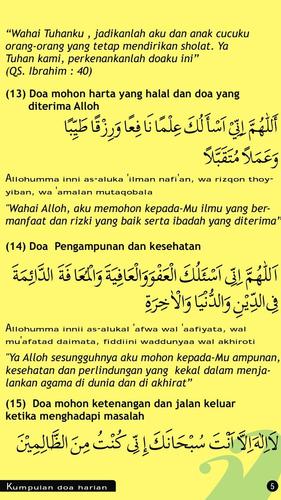 “Wahai Tuhanku , jadikanlah aku dan anak cucuku
orang-orang yang tetap mendirikan sholat. Ya
Tuhan kami, perkenankanlah doaku ini”
(QS. Ibrahim : 40)
(13) Doa mohon harta yang halal dan doa yang
diterima Alloh
أَللّٰهُمَّ إِنِّيْ أَسْأَلُكَ عِلْمًا نَافِعًا وَرِزْقًا طَيِّبًا
وَعَمَلًا مُتَقَبَّلًا
Allohumma inni as-aluka 'ilman nafi'an, wa rizqon thoy-
yiban, wa 'amalan mutaqobala
"Wahai Alloh, aku memohon kepada-Mu ilmu yang ber-
manfaat dan rizki yang baik serta ibadah yang diterima"
(14) Doa Pengampunan dan kesehatan
اَللّٰهُمَّ اِنِّى اَسْئَلُكَ الْعَفْوَوَالْعَافِيَةَ وَالْمُعَافَةَ الدَّائِمَةَ
فِى الدِّيْنِ وَالدُّنْيَا وَالْاٰخِرَةِ
Allohumma innii as-alukal 'afwa wal 'aafiyata, wal
mu'afatad daimata, fiddiini waddunyaa wal akhiroti
"Ya Alloh sesungguhnya aku mohon kepada-Mu ampunan,
kesehatan dan perlindungan yang kekal dalam menja-
lankan agama di dunia dan di akhirat”
(15) Doa mohon ketenangan dan jalan keluar
ketika menghadapi masalah
لَااِلٰهَ اِلَّا أَنْتَ سُبْحَانَكَ اِنِّى كُنْتُ مِنَ الظَّالِمِيْنَ
Kumpulan doa harian
5